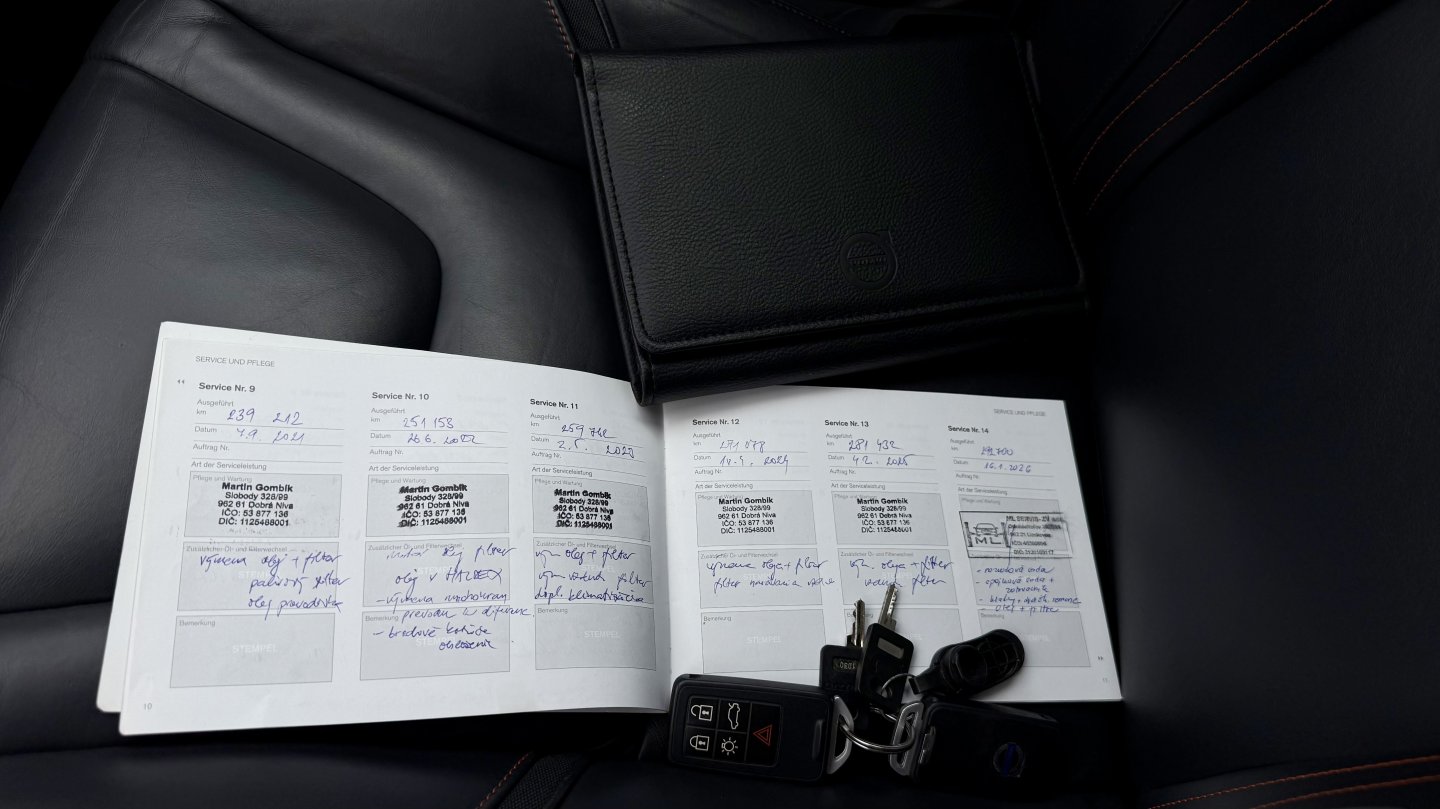 SERVICE UND PFLEGE
Service Nr. 9
Ausgeführt
km 239 212
Datum 7.9. 2021
Auftrag Nr.
Art der Serviceleistung
Pflege und Wartung
Martin Gombík
Slobody 328/99
962 61 Dobrá Niva
IČO: 53 877 136
DIČ: 1125488001
Zusätzlicher Öl- und Filterwechsel
výmena olej + filter
palivový filter
olej prevodovka
Bemerkung
STEMPEL
10
Service Nr. 10
Ausgeführt
km 251 153
Datum 26.6. 2022
Auftrag Nr.
Art der Serviceleistung
Pflege und Wartung
Martin Gombík
Slobody 328/99
962 61 Dobrá Niva
IČO: 53 877 136
DIČ: 1125488001
Zusätzlicher Öl- und Filterwechsel
olej filter
olej v HALDEX
- výmena
prevodu
Bemerkung
- brzdové kotúče
obloženie
Service Nr. 11
Ausgeführt
km 259 742
Datum 2.5. 2023
Auftrag Nr.
Art der Serviceleistung
Pflege und Wartung
Martin Gombík
Slobody 328/99
962 61 Dobrá Niva
IČO: 53 877 136
DIČ: 1125488001
Zusätzlicher Öl- und Filterwechsel
vým olej + filter
vým vzduch filter
dopl. klimatizácia
Bemerkung
STEMPEL
SERVICE UND PFLEGE
Service Nr. 12
Ausgeführt
km 271 078
Datum 2024
Auftrag Nr.
Art der Serviceleistung
Pflege und Wartung
Martin Gombík
Slobody 328/99
962 61 Dobrá Niva
IČO: 53 877 136
DIČ: 1125488001
Zusätzlicher Öl- und Filterwechsel
výmena oleja + filter
filter
Bemerkung
STEMPEL
Service Nr. 13
Ausgeführt
km 281 432
Datum 4.2. 2025
Auftrag Nr.
Art der Serviceleistung
Pflege und Wartung
Martin Gombík
Slobody 328/99
962 61 Dobrá Niva
IČO: 53 877 136
DIČ: 1125488001
Zusätzlicher Öl- und Filterwechsel
vým. oleja + filter
filter
Service Nr. 14
Ausgeführt
km 292 700
Datum 16.1. 2026
Auftrag Nr.
Art der Serviceleistung
Pflege und Wartung
ML
ML SERVIS-ZV
- olej + filter
Bemerkung
11
VOLVO